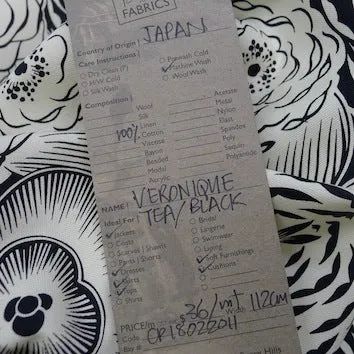 FABRICS
Country of Origin | JAPAN
Care Instructions |
Dry Clean (P) Prewash Cold
H/W Cold Machine Wash
Silk Wash Wool Wash
Composition |
Wool Acetate
Silk Metal
Linen Nylon
100% Cotton Dast
Viscose Spandex
Rayon Poly
Beaded Saquin
Modal Polyamide
Acrylic
NAME | VERONIQUE
TEA/BLACK
Ideal For | Bridal
Jackets Lingerie
Coats Swimwear
Scarves | Shawls Lining
Pants | Shorts Soft Furnishings
Dresses Cushions
Skirts
Tops
Shirts
PRICE/m $36/mt Width 112cm
Code CP18022011
Bay #
Hills